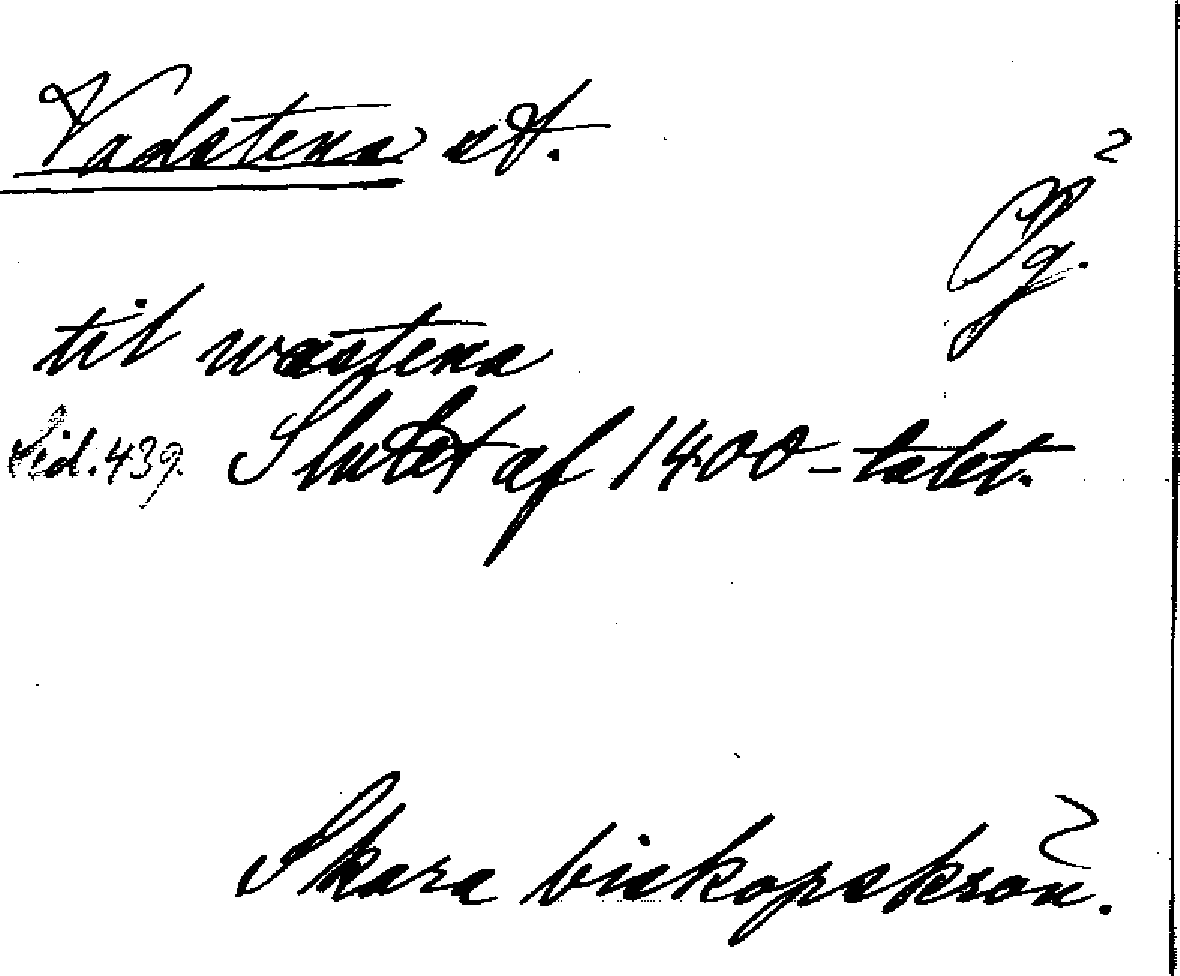 Vadstena st.
2
Ög.
til wastena
Sid. 439. Slutet af 1400-talet.
Skara biskopskrön.